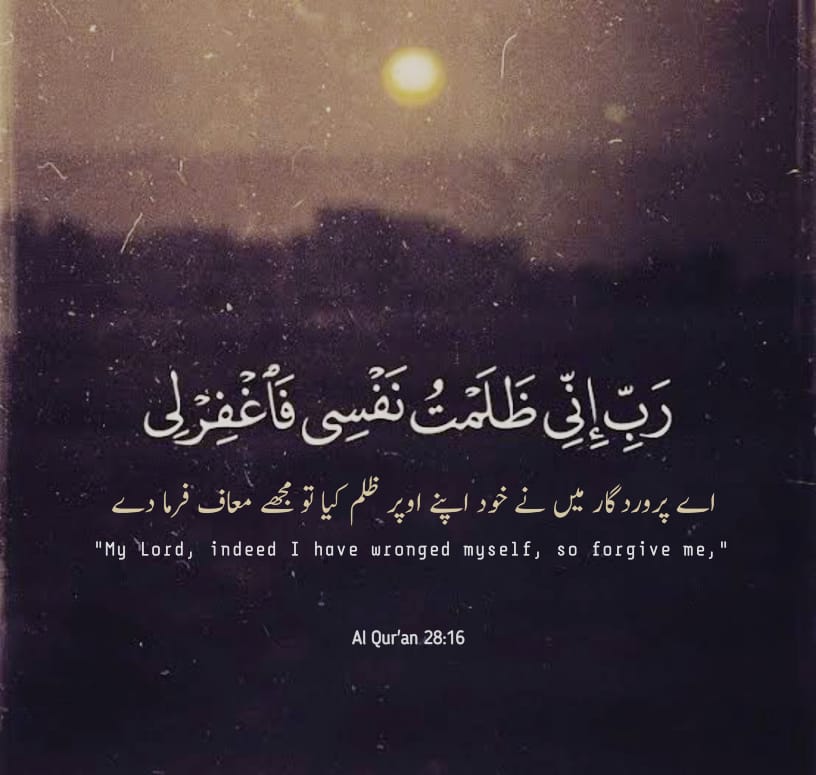 رَبِّ إِنِّي ظَلَمْتُ نَفْسِي فَٱغْفِرْ لِي
اے پروردگار میں نے خود اپنے اوپر ظلم کیا تو مجھے معاف فرما دے
"My Lord, indeed I have wronged myself, so forgive me,"
Al Qur'an 28:16